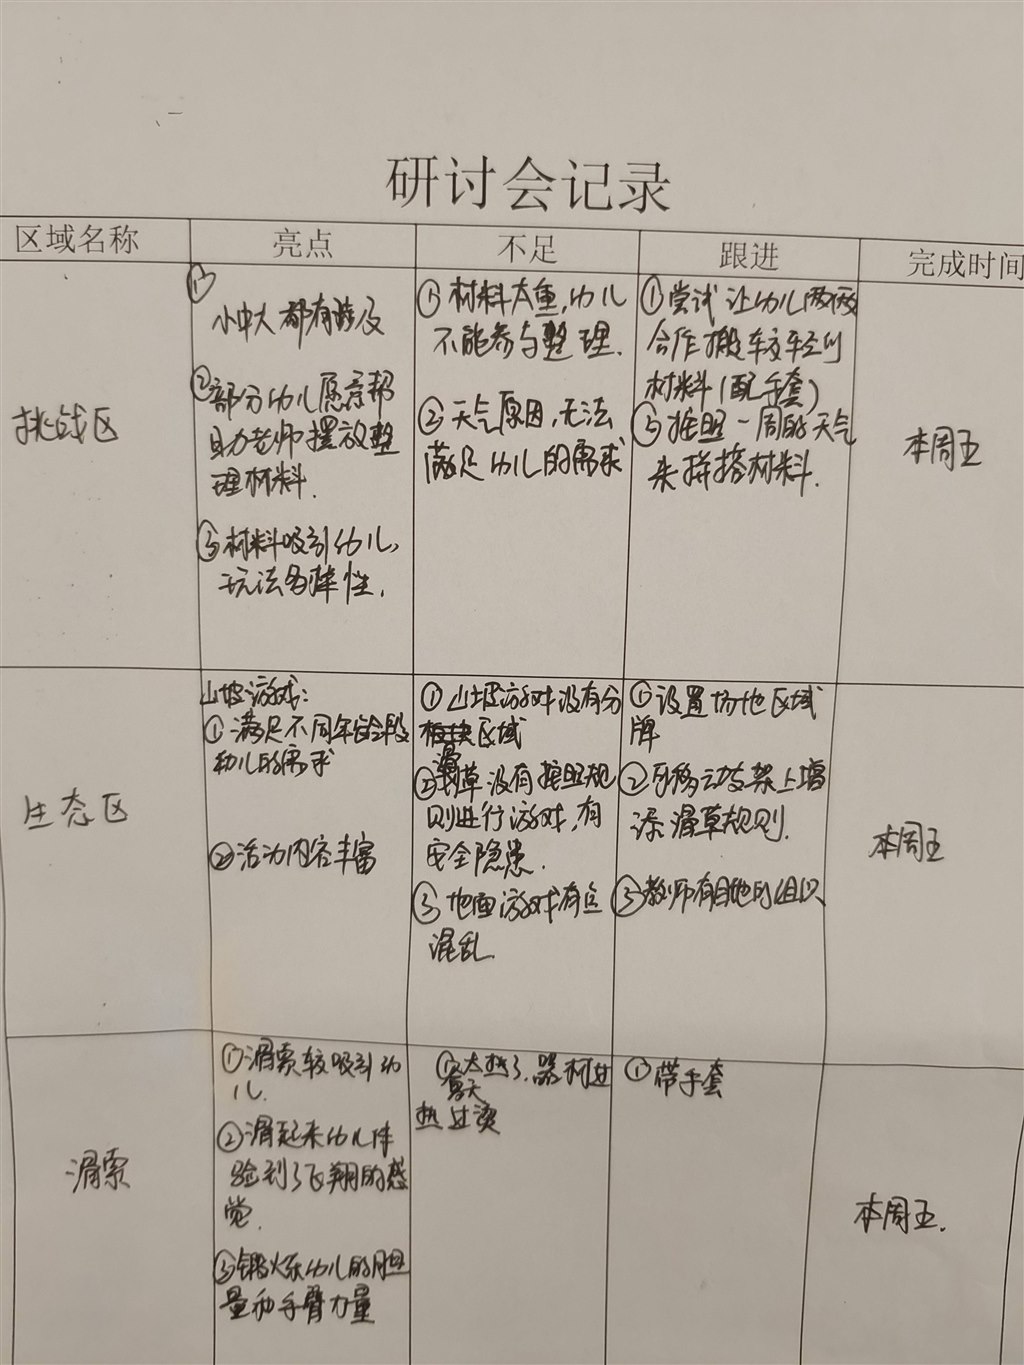 研讨会记录
区域名称
亮点
不足
跟进
完成时间
挑战区
①
小中大都有涉及
②部分幼儿愿意帮
助老师摆放整
理材料.
③材料吸引幼儿,
玩法多样性.
①材料太重,幼儿
不能参与整理.
②天气原因,无法
满足幼儿的需求
①尝试让幼儿两两
合作搬较轻的
材料(配手套)
②按照一周的天气
来拼搭材料.
本周五
生态区
山坡游戏:
①满足不同年龄段
幼儿的需求
②活动内容丰富
①山坡游戏没有分
区域
②滑草没有按照规
则进行游戏,有
安全隐患.
③地面游戏有点
混乱.
①设置场地区域
牌
②可移动支架上增
添滑草规则.
③教师有目地的组织
本周五
滑索
①滑索较吸引幼
儿.
②滑起来幼儿体
验到了飞翔的感
觉.
③锻炼幼儿的胆
量和手臂力量
①夏天太热了.器材过
热过烫
①带手套
本周五.